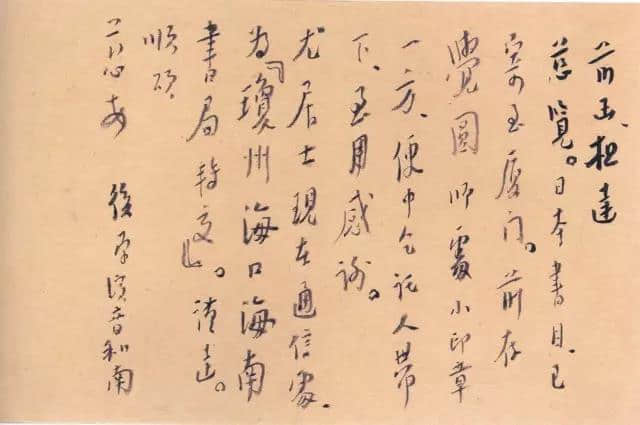 前函想達
慈覽。日本書目、已
寄至廈门。前存
覺圓师處小印章
一方、便中乞託人帶
下、至用感謝。
尤居士現在通信處、
为『瓊州海口海南
書局轉交』。謹達。
順頌
慈安
後學演音和南